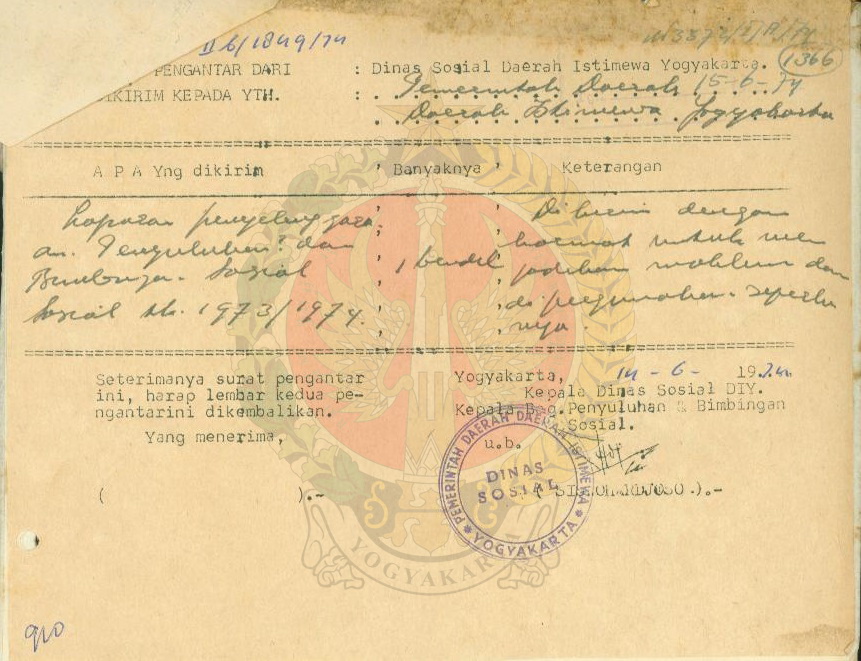 II 6/1849/74
1366
PENGANTAR DARI : Dinas Sosial Daerah Istimewa Yogyakarta.
15-6-74
DIKIRIM KEPADA YTH. : Pemerintah Daerah
Daerah Istimewa Yogyakarta
A P A Yng dikirim Banyaknya Keterangan
Laporan penyelenggara-
an. Penyuluhan dan
Bimbingan Sosial
Sosial th. 1973/1974.
1 bendel
Dikirim dengan
hormat untuk men
jadikan maklum dan
di pergunakan seperlu
nya.
Seterimanya surat pengantar
ini, harap lembar kedua pe-
ngantarini dikembalikan.
Yang menerima,
( ).-
Yogyakarta, 14 - 6 - 1974
Kepala Dinas Sosial DIY.
Kepala Bag. Penyuluhan & Bimbingan
Sosial.
u.b.
PEMERINTAH DAERAH DAERAH ISTIMEWA
DINAS
SOSIAL
YOGYAKARTA
YOGYAKARTA
910